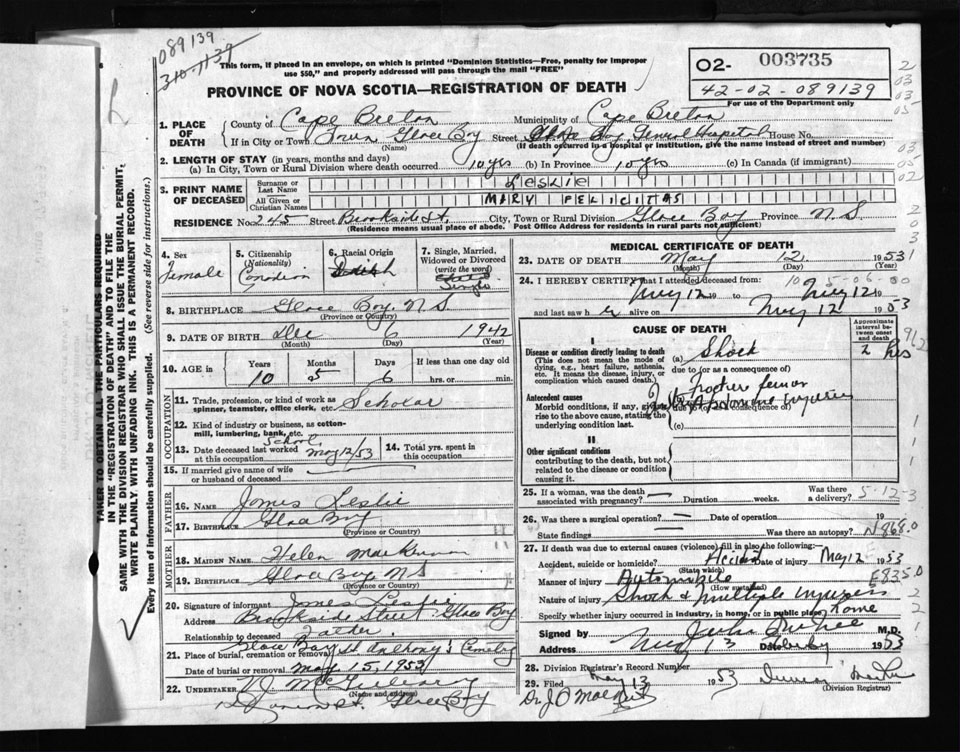 089139
310-1139
This form, if placed in an envelope, on which is printed "Dominion Statistics—Free, penalty for improper
use $50," and properly addressed will pass through the mail "FREE"
PROVINCE OF NOVA SCOTIA—REGISTRATION OF DEATH
O2- 003735
42-02-089139
For use of the Department only
1. PLACE OF DEATH
County of Cape Breton Municipality of Cape Breton
If in City or Town Town Glace Bay Street Glace Bay General Hospital House No.
(Name) (If death occurred in a hospital or institution, give the name instead of street and number)
2. LENGTH OF STAY (in years, months and days)
(a) In City, Town or Rural Division where death occurred 10 yrs (b) In Province 10 yrs (c) In Canada (if immigrant)
3. PRINT NAME OF DECEASED
Surname or Last Name Leslie
All Given or Christian Names MARY FELICITAS
RESIDENCE No. 245 Street Brookside St. City, Town or Rural Division Glace Bay Province N.S.
(Residence means usual place of abode. Post Office Address for residents in rural parts not sufficient)
4. Sex Female
5. Citizenship (Nationality) Canadian
6. Racial Origin
7. Single, Married, Widowed or Divorced (write the word) Single
8. BIRTHPLACE Glace Bay, N.S.
(Province or Country)
9. DATE OF BIRTH Dec 6 1942
(Month) (Day) (Year)
10. AGE in Years 10 Months 5 Days 6 If less than one day old hrs. or min.
OCCUPATION
11. Trade, profession, or kind of work as spinner, teamster, office clerk, etc. Scholar
12. Kind of industry or business, as cotton-mill, lumbering, bank, etc. School
13. Date deceased last worked at this occupation May 12/53
14. Total yrs. spent in this occupation
15. If married give name of wife or husband of deceased
FATHER
16. NAME James Leslie
17. BIRTHPLACE Glace Bay
(Province or Country)
MOTHER
18. MAIDEN NAME Helen MacKinnon
19. BIRTHPLACE Glace Bay, N.S
(Province or Country)
20. Signature of informant James Leslie
Address Brookside Street Glace Bay
Relationship to deceased Father
21. Place of burial, cremation or removal Glace Bay St Anthony's Cemetery
Date of burial or removal May 15, 1953
22. UNDERTAKER
(Name and address)
Glace Bay
MEDICAL CERTIFICATE OF DEATH
23. DATE OF DEATH May 12 1953
(Month) (Day) (Year)
24. I HEREBY CERTIFY that I attended deceased from
May 12 19 to May 12 19
and last saw h er alive on May 12 1953
CAUSE OF DEATH
Approximate interval between onset and death
I
Disease or condition directly leading to death (a) Shock 2 hrs
(This does not mean the mode of dying, e.g., heart failure, asthenia, etc. It means the disease, injury, or complication which caused death.)
due to (or as a consequence of)
Antecedent causes
Morbid conditions, if any, giving rise to the above cause, stating the underlying condition last.
(b) femur
due to (or as a consequence of) injuries
(c)
II
Other significant conditions
contributing to the death, but not related to the disease or condition causing it.
25. If a woman, was the death associated with pregnancy? — Duration weeks. Was there a delivery? 5-12-3
26. Was there a surgical operation? — Date of operation 19
State findings Was there an autopsy? N868.0
27. If death was due to external causes (violence) fill in also the following:
Accident, suicide or homicide? Accident Date of injury May 12 1953
(State which)
Manner of injury Automobile E835.0
(How sustained)
Nature of injury Shock & multiple injuries
Specify whether injury occurred in industry, in home, or in public place
Signed by M.D.
Address Date 1953
28. Division Registrar's Record Number
29. Filed May 13 1953
(Division Registrar)
TAKEN TO OBTAIN ALL THE PARTICULARS REQUIRED
IN THE "REGISTRATION OF DEATH" AND TO FILE THE
SAME WITH THE DIVISION REGISTRAR WHO SHALL ISSUE THE BURIAL PERMIT.
WRITE PLAINLY WITH UNFADING INK. THIS IS A PERMANENT RECORD.
Every item of information should be carefully supplied. (See reverse side for instructions.)